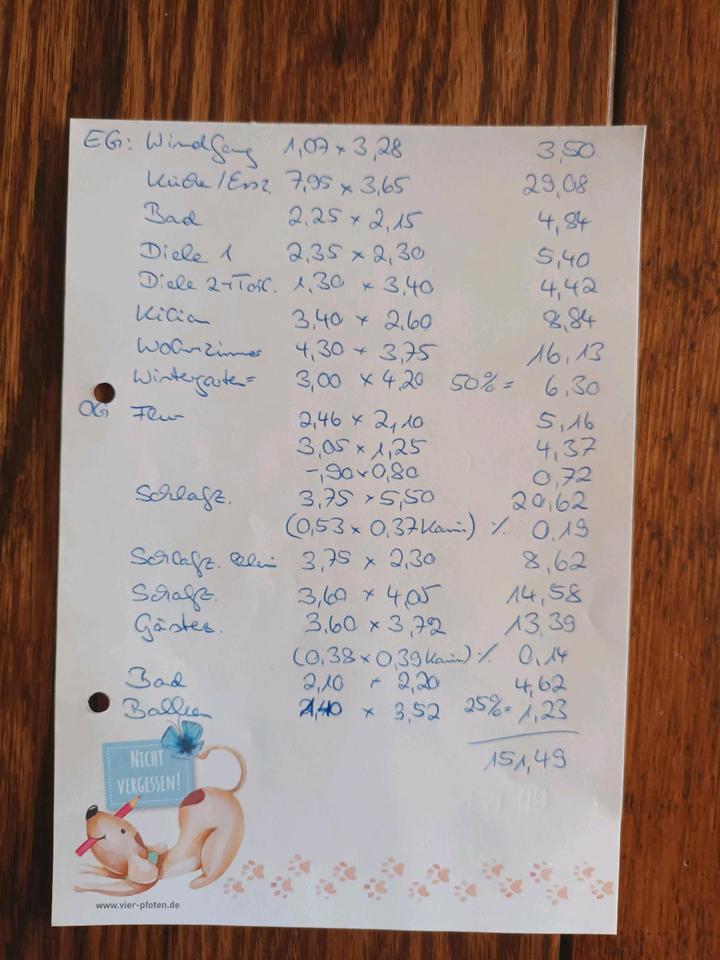 EG: Windfang 1,07 x 3,28 3,50
Küche/Essz. 7,95 x 3,65 29,08
Bad 2,25 x 2,15 4,84
Diele 1 2,35 x 2,30 5,40
Diele 2+Toil. 1,30 x 3,40 4,42
Kilian 3,40 x 2,60 8,84
Wohnzimmer 4,30 x 3,75 16,13
Wintergarten= 3,00 x 4,20 50%= 6,30
OG Flur 2,46 x 2,10 5,16
3,05 x 1,25 4,37
-,90 x 0,80 0,72
Schlafz. 3,75 x 5,50 20,62
(0,53 x 0,37 Kamin) % 0,19
Schlafz. klein 3,75 x 2,30 8,62
Schafz. 3,60 x 4,05 14,58
Gästez. 3,60 x 3,72 13,39
(0,38 x 0,39 Kamin) % 0,14
Bad 2,10 x 2,20 4,62
Balkon 1,40 x 3,52 25%= 1,23
151,49
NICHT
VERGESSEN!
www.vier-pfoten.de